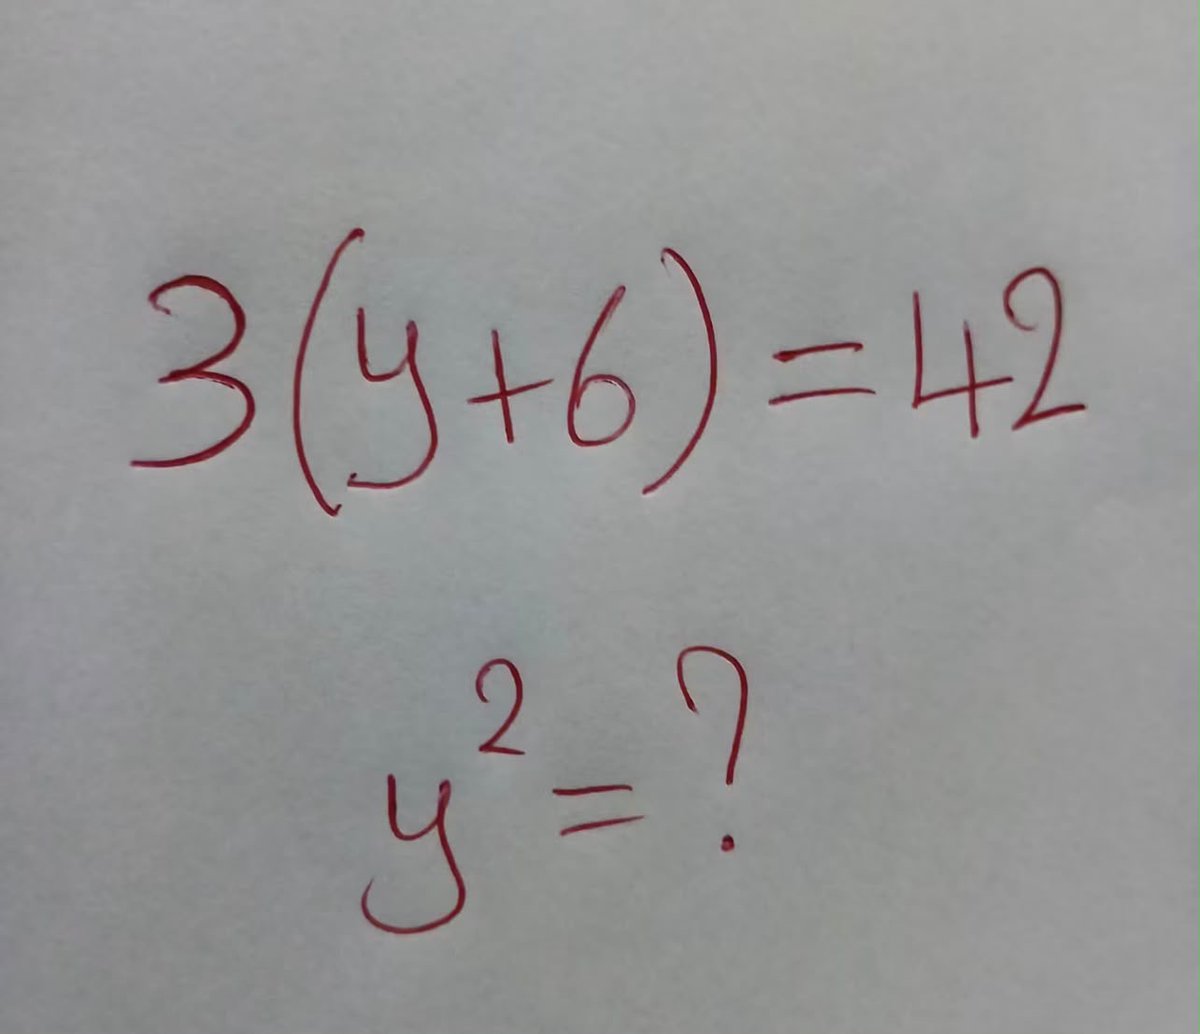 3(y+6)=42
y²=?